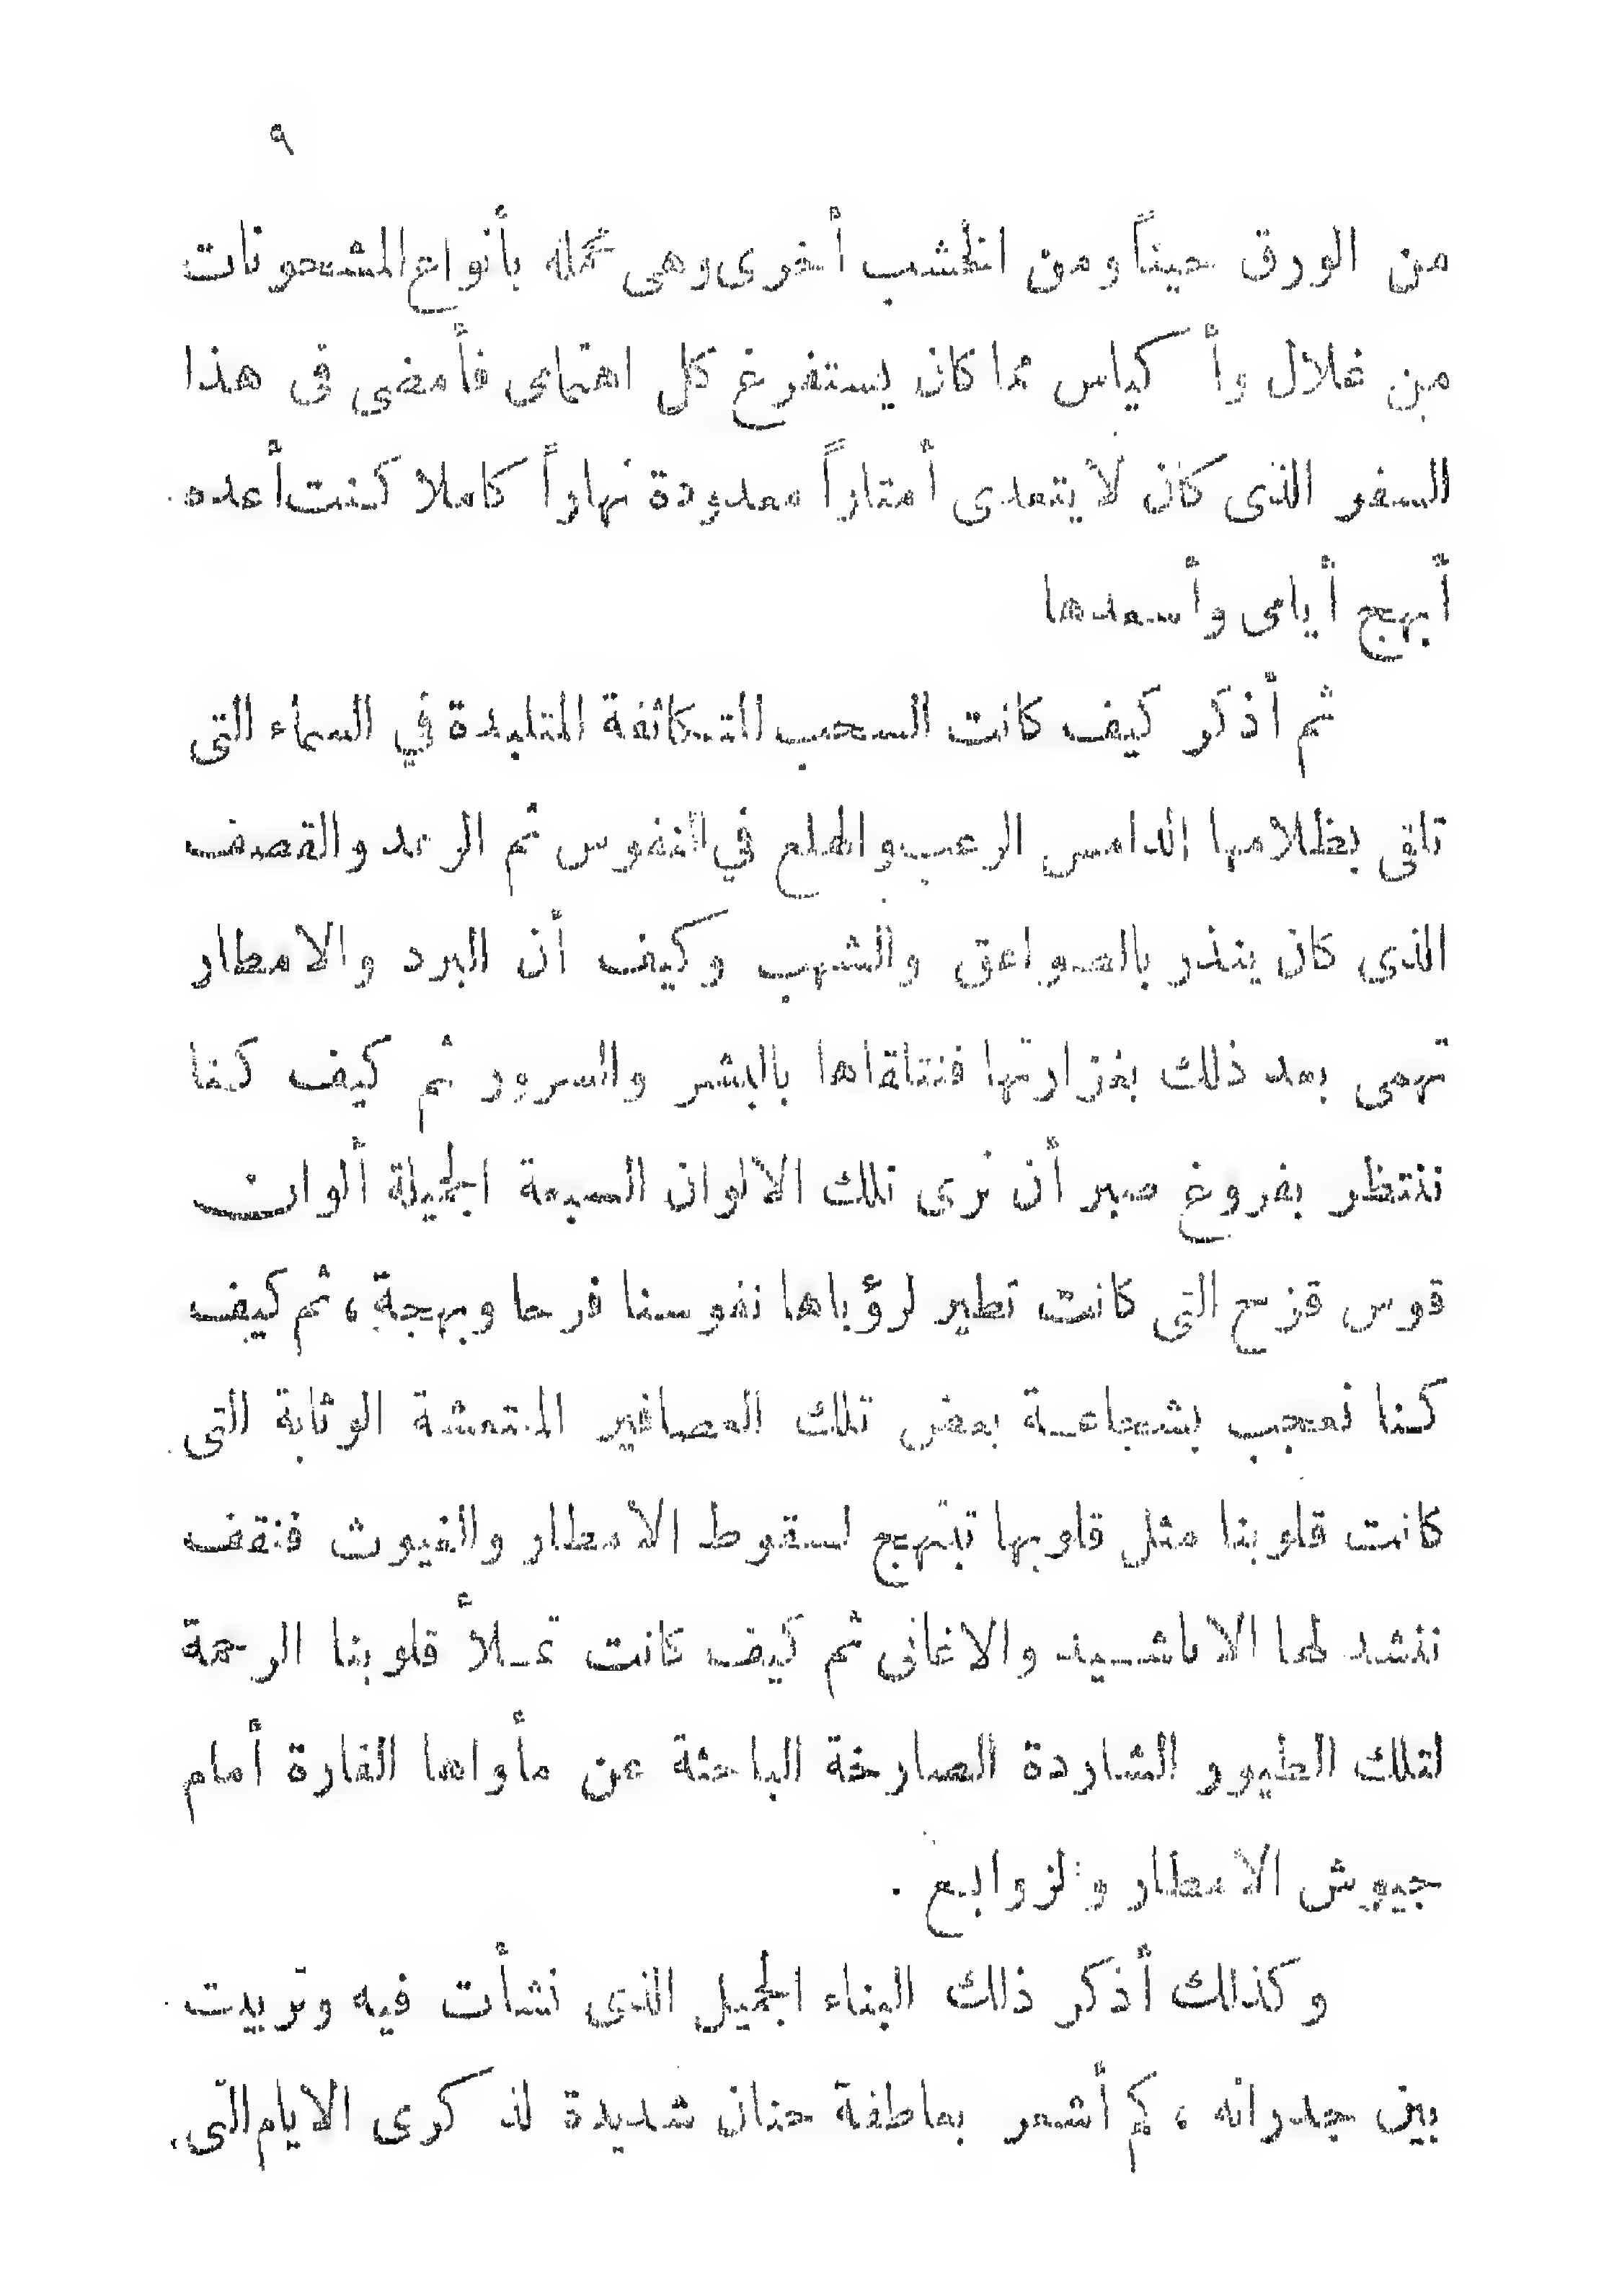 ٩
من الورق حيناً ومن الخشب أخرى وهى محملة بأنواع المشحونات
من غلال وأكياس مما كان يستفرغ كل اهتمامى فأمضى فى هذا
السفر الذى كان لا يتعدى أمتاراً معدودة نهاراً كاملا كنت أعده
أبهج أيامى وأسعدها
ثم أذكر كيف كانت السحب المتكاثفة المتلبدة في السماء التى
تلقى بظلامها الدامس الرعب والهلع في النفوس ثم الرعد والقصف
الذى كان ينذر بالصواعق والشهب وكيف أن البرد والامطار
تهمى بعد ذلك بغزارتها فنتلقاها بالبشر والسرور ثم كيف كنا
ننتظر بفروغ صبر أن نرى تلك الالوان السبعة الجميلة ألوان
قوس قزح التى كانت تطير لرؤياها نفوسنا فرحا وبهجة ، ثم كيف
كنا نعجب بشجاعة بعض تلك العصافير المنتعشة الوثابة التى
كانت قلوبنا مثل قلوبها تبتهج لسقوط الامطار والغيوث فنقف
ننشد لها الاناشيد والاغانى ثم كيف كانت تملأ قلوبنا الرحمة
لتلك الطيور الشاردة الصارخة الباحثة عن مأواها الفارة أمام
جيوش الامطار والزوابع .
وكذلك أذكر ذلك البناء الجميل الذى نشأت فيه وتربيت
بين جدرانه ، كم أشعر بعاطفة حنان شديدة لذكرى الايام التى